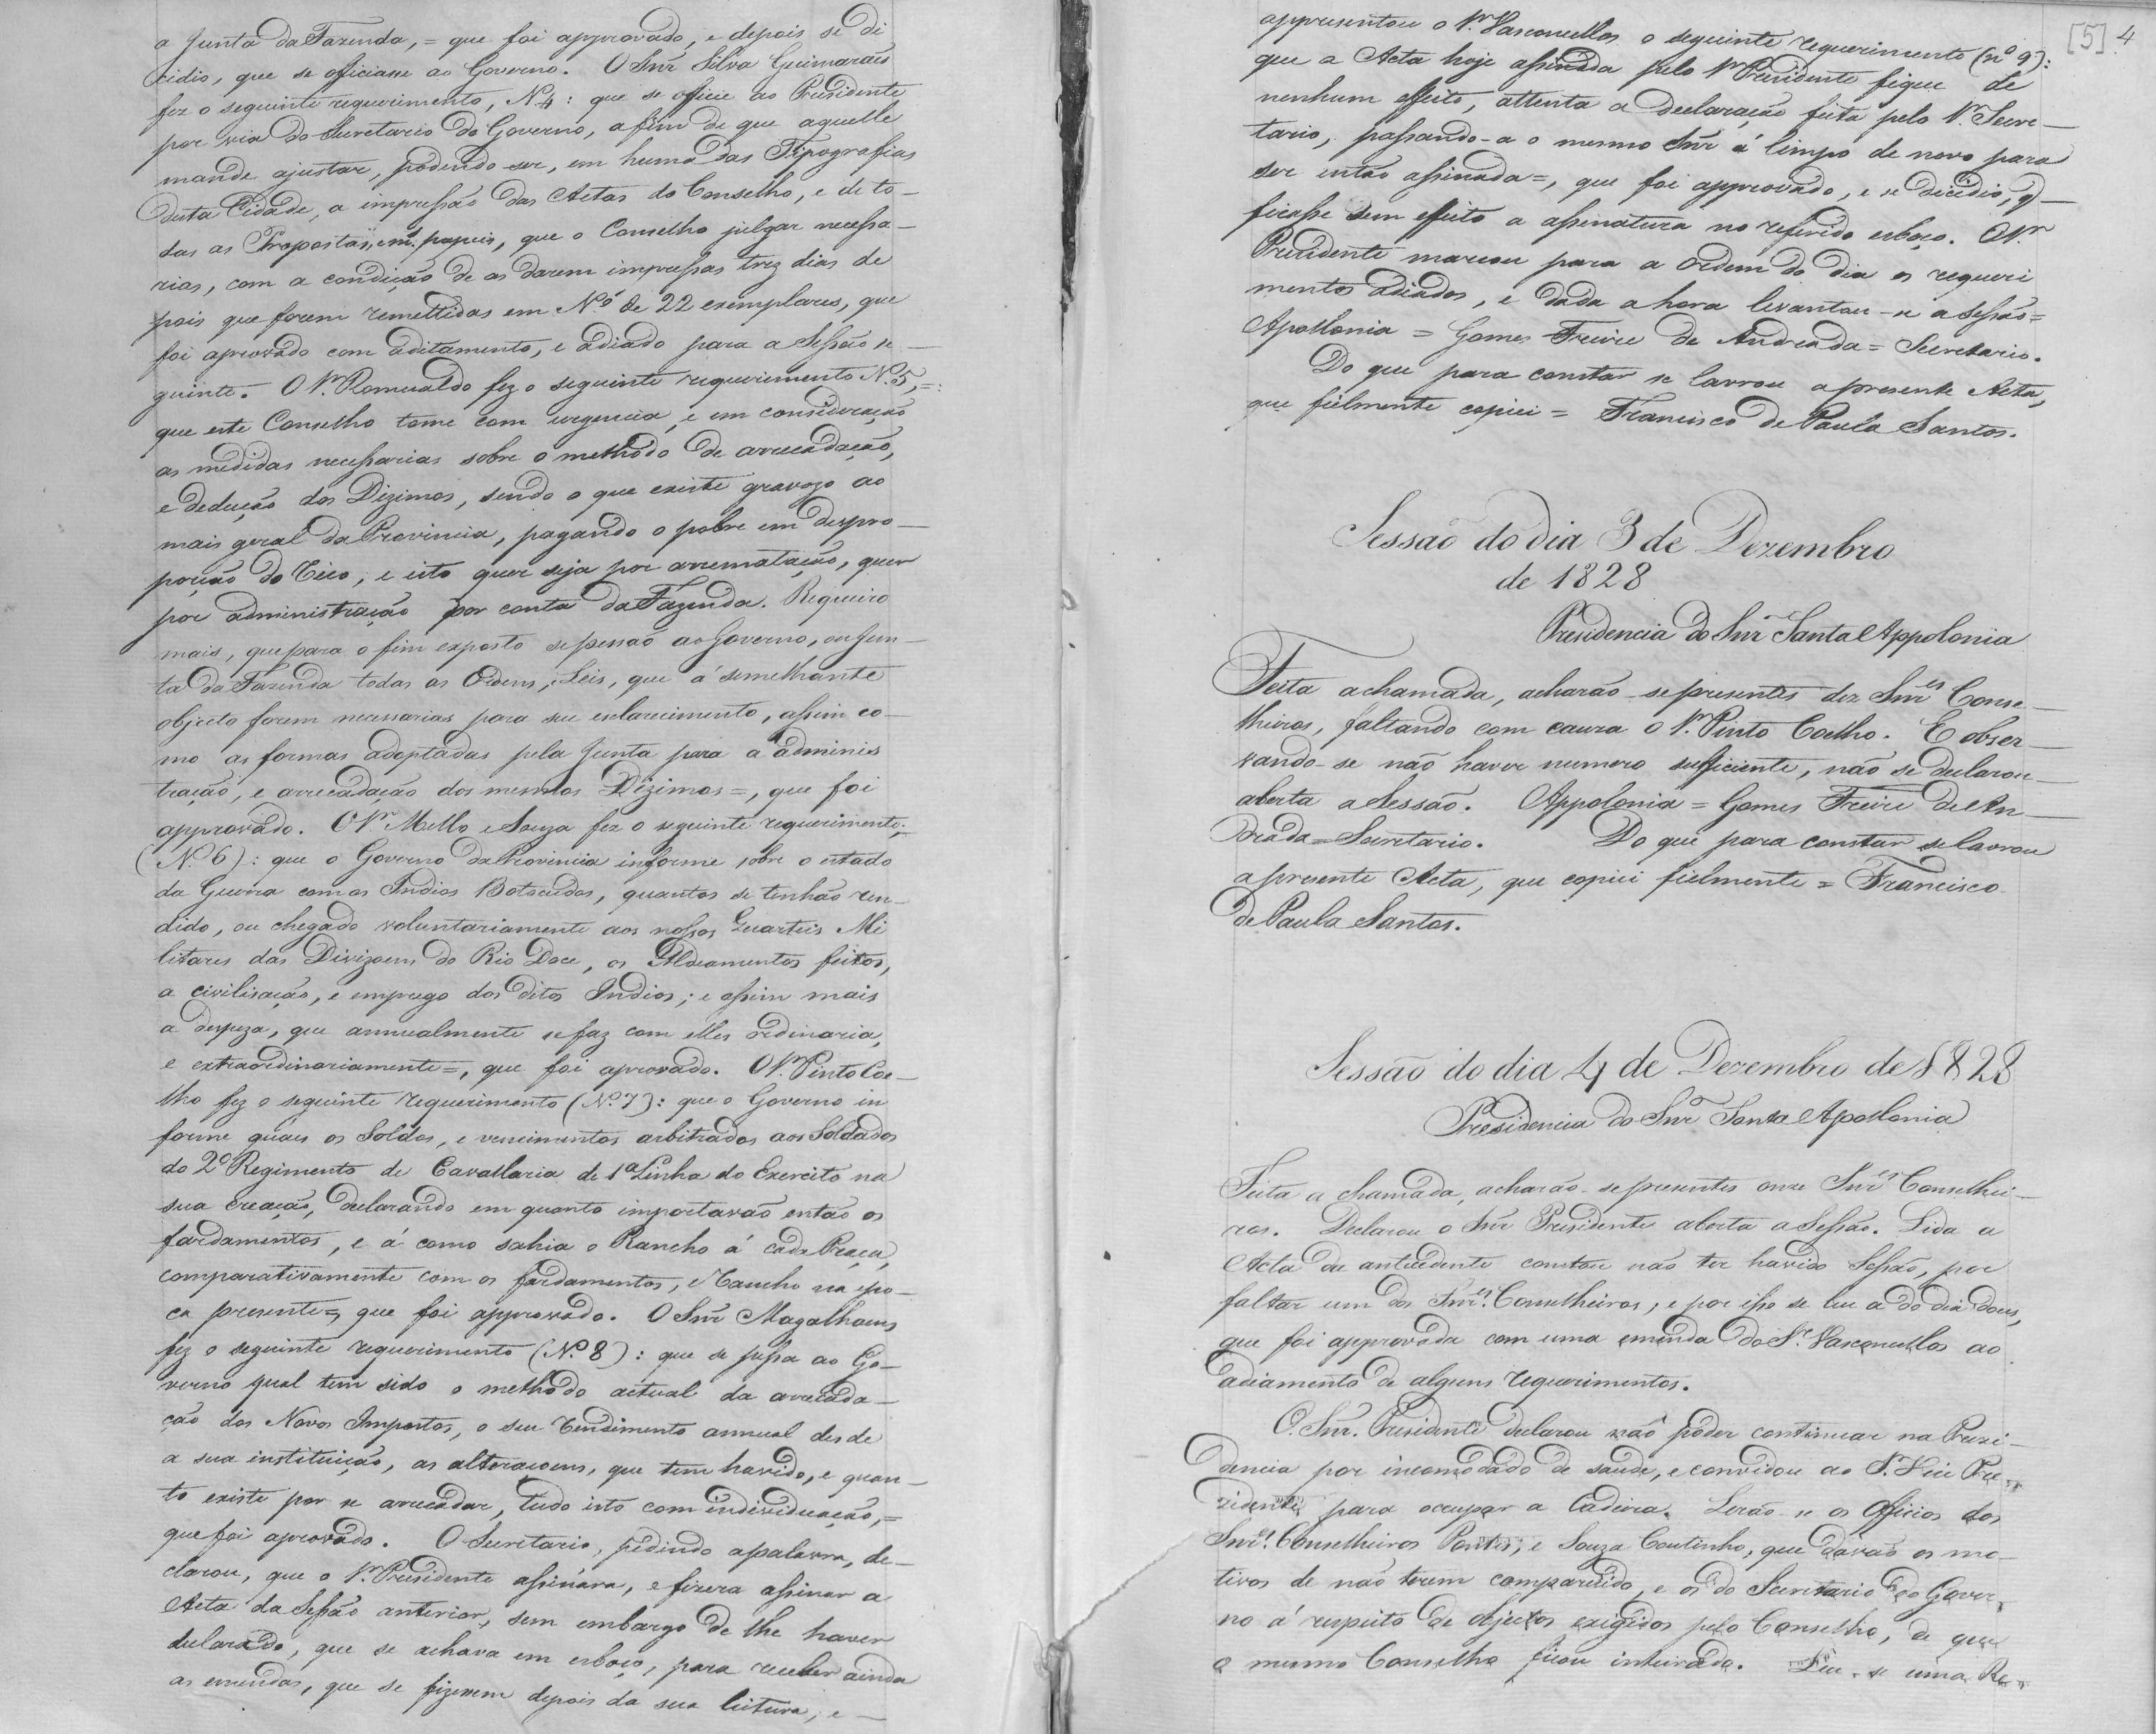 a Junta da Fazenda, = que foi approvado, e depois se di
cidio, que se officiasse ao Governo. O Snr Silva Guimarães
fez o seguinte requerimento, N.4: que se officie ao Presidente
por via do Secretario do Governo, afim de que aquelle
mande ajustar, podendo ser, em huma das Tipografias
desta Cidade, a impressão das Actas do Conselho, e de to-
das as Propostas, papeis, que o Conselho julgar necessa-
rias, com a condição de as darem impressas trez dias de
pois que forem remettidas em N.º de 22 exemplares, que
foi aprovado com aditamento, e adiado para a Sessão se-
guinte. O Sr. Romualdo fez o seguinte requerimento N.5, =:
que este Conselho tome com urgencia, e em consideração
as medidas necessarias sobre o methodo de arrecadação,
e dedução dos Dizimos, sendo o que existe gravozo ao
mais geral da Provincia, pagando o pobre em despro-
porção do Rico, e isto quer seja por arrematação, quer
por administração por conta da Fazenda. Requeiro
mais, que para o fim exposto se pessão ao Governo, ou Jun-
ta da Fazenda todas as Ordens, Leis, que á semelhante
objecto forem necessarias para seu esclarecimento, assim co-
mo as formas adoptadas pela Junta para a adminis
tração, e arrecadação dos mesmos Dizimos =, que foi
approvado. O Sr. Mello e Souza fez o seguinte requerimento;
(N.º 6): que o Governo da Provincia informe sobre o estado
da Guerra com os Indios Botecudos, quantos se tenhão ren-
dido, ou chegado voluntariamente aos nossos Quarteis Mi
litares das Divizoens do Rio Doce, os Aldeamentos feitos,
a civilisação, e emprego dos ditos Indios; e assim mais
a despeza, que annualmente se faz com elles ordinaria,
e extraordinariamente =, que foi aprovado. O Sr. Pinto Coe-
lho fez o seguinte requerimento (N.º 7): que o Governo in
forme quaes os Soldos, e vencimentos arbitrados aos Soldados
do 2º Regimento de Cavallaria de 1ª Linha do Exercito na
sua creação, declarando em quanto importavão então os
fardamentos, e á como sahia o Rancho á cada Praça,
comparativamente com os fardamentos, e Rancho na epo-
ca presente =, que foi approvado. O Snr Magalhaens
fez o seguinte requerimento (N.º 8): que se pessa ao Go-
verno qual tem sido o methodo actual da arrecada-
ção dos Novos Impostos, o seu rendimento annual desde
a sua instituição, as alteraçoens, que tem havido, e quan-
to existe por se arrecadar, tudo isto com individuação, =
que foi aprovado. O Secretario, pedindo a palavra, de-
clarou, que o Sr. Presidente assinára, e fizera assinar a
Acta da Sessão anterior, sem embargo de lhe haver
declarado, que se achava em esboço, para receber ainda
as emendas, que se fizessem depois da sua leitura, e -
[5] 4
appresentou o Sr. Vasconcellos o seguinte requerimento (nº 9):
que a Acta hoje assinada pelo Sr Presidente fique de
nenhum effeito, attenta a declaração feita pelo Sr. Secre-
tario, passando-a o mesmo Snr á limpo de novo para
ser então assinada =, que foi approvado, e se dicidio, q -
ficasse sem effeito a assinatura no referido esboco. O Sr.
Presidente marcou para a ordem do dia os requeri
mentos adiados, e dada a hora levantou-se a sessão =
Apollonia = Gomes Freire de Andrada = Secretario.
Do que para constar se lavrou a presente Acta,
que fielmente copiei = Francisco de Paula Santos.
Sessão do dia 3 de Dezembro
de 1828
Presidencia do Snr Santa Appolonia
Feita a chamada, acharão-se presentes dez Snr.es Conse-
lheiros, faltando com causa o Sr. Pinto Coelho. E obser-
vando-se não haver numero sufficiente, não se declarou
aberta a Sessão. Appolonia = Gomes Freire de An-
drada = Secretario. Do que para constar se lavrou
a presente Acta, que copiei fielmente = Francisco
de Paula Santos.
Sessão do dia 4 de Dezembro de 1828
Presidencia do Snr Santa Apollonia
Feita a chamada, acharão-se presentes onze Snr.es Conselhei-
ros. Declarou o Snr Presidente aberta a Sessão. Lida a
Acta da antecedente constou não ter havido Sessão, por
faltar um dos Snr.es Conselheiros, e por isso se leu a do dia dous,
que foi approvada com uma emenda do Sr. Vasconcellos ao
adiamento de alguns requerimentos.
O Snr. Presidente declarou não poder continuar na Prezi-
dencia por incomodado de saude, e convidou ao Sr. Vice Pre-
zidente para occupar a Cadeira. Lerão-se os Officios dos
Snr.es Conselheiros Pontes, e Souza Coutinho, que davão os mo-
tivos de não terem comparecido, e os do Secretario do Gover-
no á respeito de objectos exigidos pelo Conselho, de que
o mesmo Conselho ficou inteirado. Leu-se uma Re-